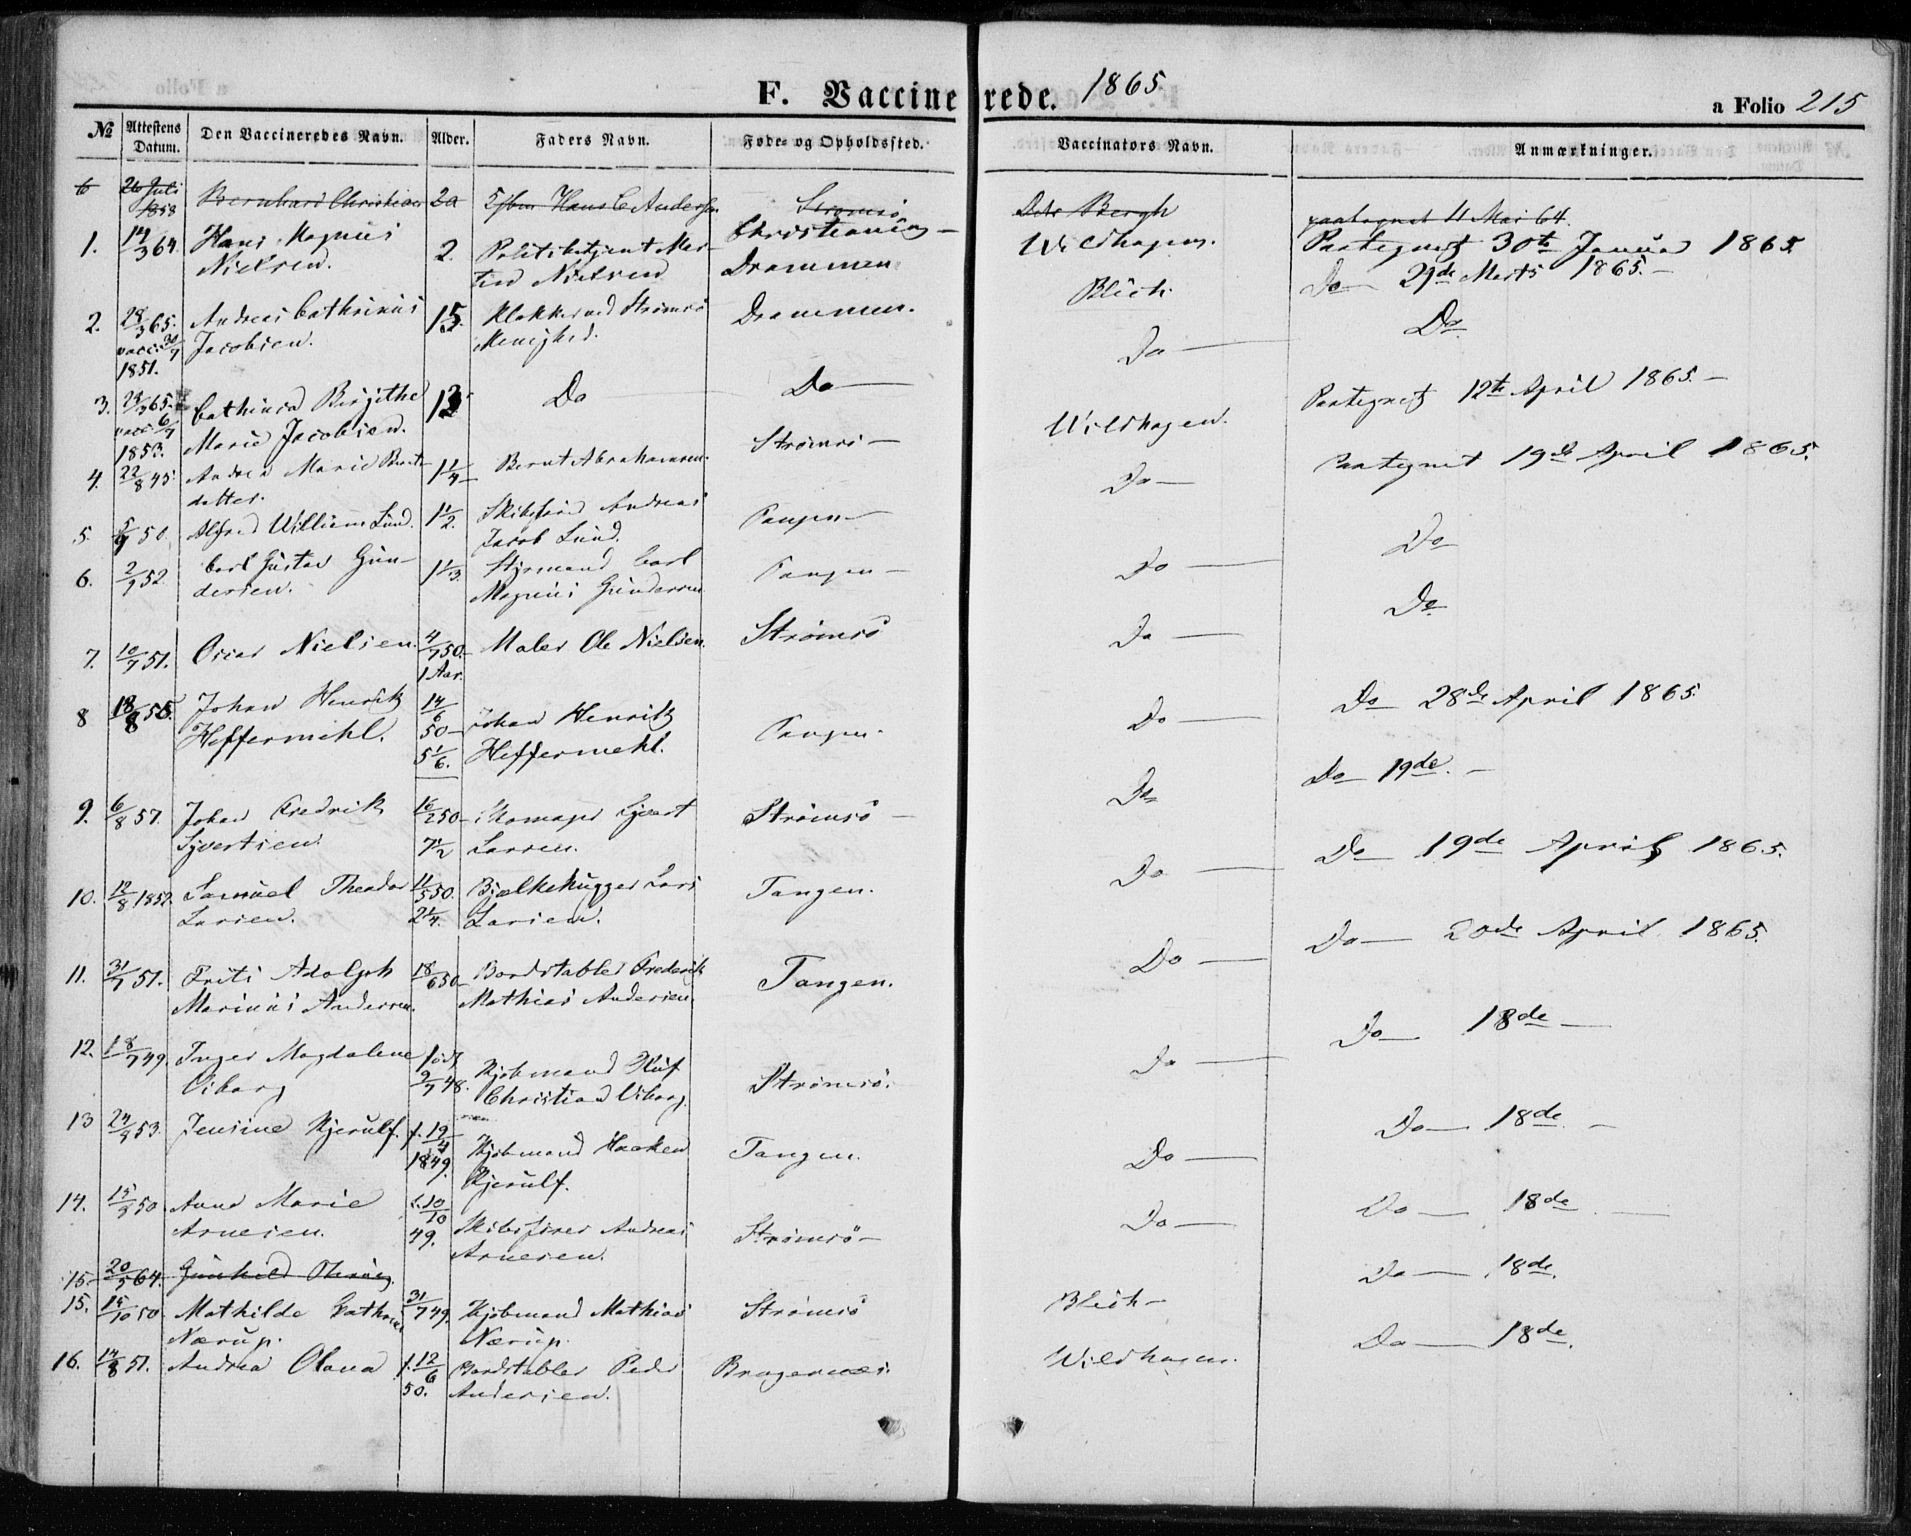 F. Vaccinerede. 1865
a Folio 215
№ Attestens Datum. Den Vaccineredes Navn. Alder. Faders Navn. Føde- og Opholdssted. Vaccinators Navn. Anmærkninger.
6 26 Juli 1858 Bernhard Christian Hans C Andersen Strømsø Bergh paategnet 11 Mai 64.
1. 14/3 64. Hans Magnus 2. Politibetjent Mar- Christiania - Wildhagen. Paategnet 30te Januar 1865.
Nielsen. tin Nielsen Drammen.
2. 28/3 65. Andreas Cathrinus 15. Klokker ved Strømsø Drammen. Blich. Do 29de Marts 1865. -
vacc. 30/7 1851. Jacobsen. Menighed.
3. 29/3 65. Cathinca Birgithe 13 Do Do Do Do
vacc. 6/7 1853. Marie Jacobsen.
4. 22/8 45. Andrea Marie Bernts- 1 1/4 Bernt Abrahamsen. Strømsø - Wildhagen. Paategnet 12te April 1865. -
datter.
5. 50. Alfred William Lund. 1 1/2. Skibsfører Andreas Tangen Do Paategnet 19de April 1865.
Jacob Lund.
6. 2/9 52. Carl Gustav Gun- 1 1/3. Styrmand Carl Tangen - Do Do
dersen. Magnus Gundersen
7. 10/7 51. Oscar Nielsen. 4/7 50. Maler Ole Nielsen. Strømsø Do Do
1 Aar.
8 18/8 55. Johan Henrik 14/6 50 - Johan Henrik Tangen. Do Do 28de April 1865
Heffermehl. 5 1/6. Heffermehl.
9. 6/8 57. Johan Fredrik 16/2 50 - Skomager Syvert Strømsø - Do Do 19de. -
Syvertsen. 7 1/2 Larsen.
10. 12/8 1852. Samuel Theodor 11/5 50. Bjælkehugger Lars Tangen. Do Do 19de April 1865.
Larsen. 2 1/4. Larsen.
11. 31/7 51. Frits Adolph 18/6 50 - Bordstabler Frederik Tangen. Do Do 20de April 1865.
Marinus Andersen. Mathias Andersen.
12. 18/7 49. Inger Magdalene født Kjøbmand Strømsø. Do Do 18de
Viborg 9/7 48. Christian Viborg.
13 24/9 53. Jensine Kjerulf. f. 19/4 1849. Kjøbmand Haaken Tangen. Do Do 18de. -
Kjerulf.
14. 15/8 50. Anna Marie f. 10/10 49. Skibsfører Andreas Strømsø - Do Do 18de
Arnesen. Arnesen.
15 20/5 64. Gunhild
15. 15/10 50. Mathilde Cathrine 31/7 49. Kjøbmand Mathias Strømsø Blich - Do 18de.
Nærup. Nærup.
16. 14/8 51. Andrea Olava f. 12/6 50. Bordstabler Peder Bragernæs. Wildhagen. Do 18de.
Andersen.